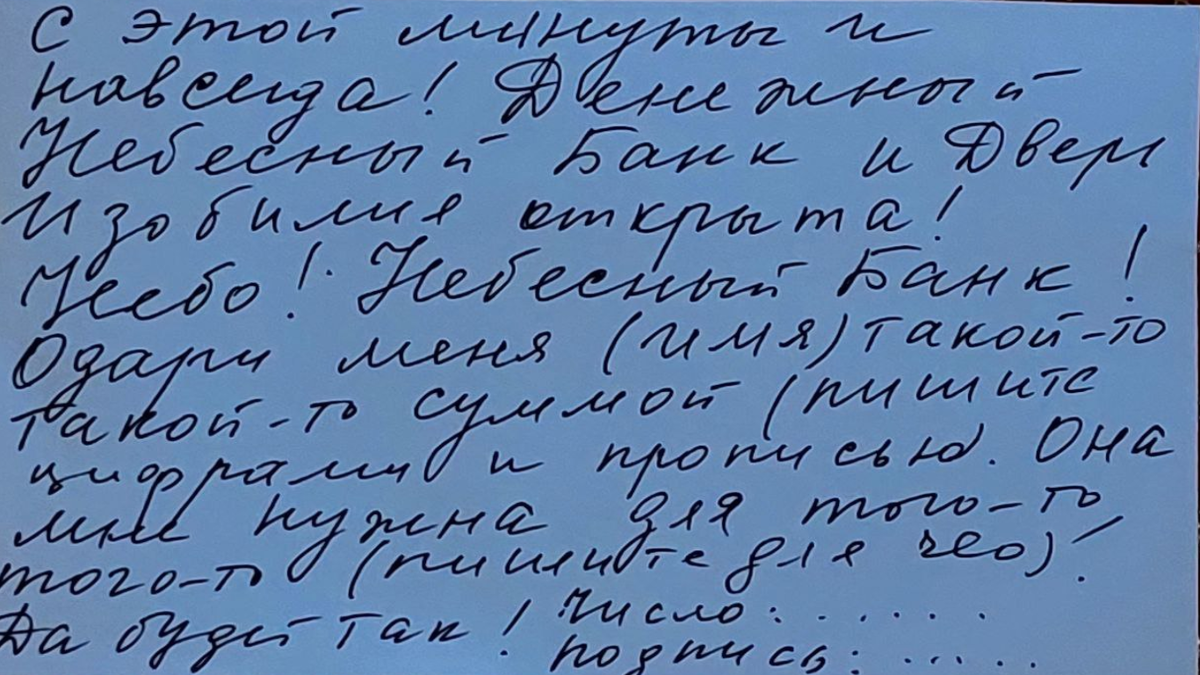 с этой минуты и
навсегда! Денежный
Небесный Банк и Двери
Изобилия открыта!
Небо! Небесный Банк!
Одари меня (имя) такой-то
такой-то суммой (пишите
цифрами и прописью. Она
мне нужна для того-то
того-то (пишите для чео)!
Да будет так! Число: . . . . . .
подпись: . . . . . .